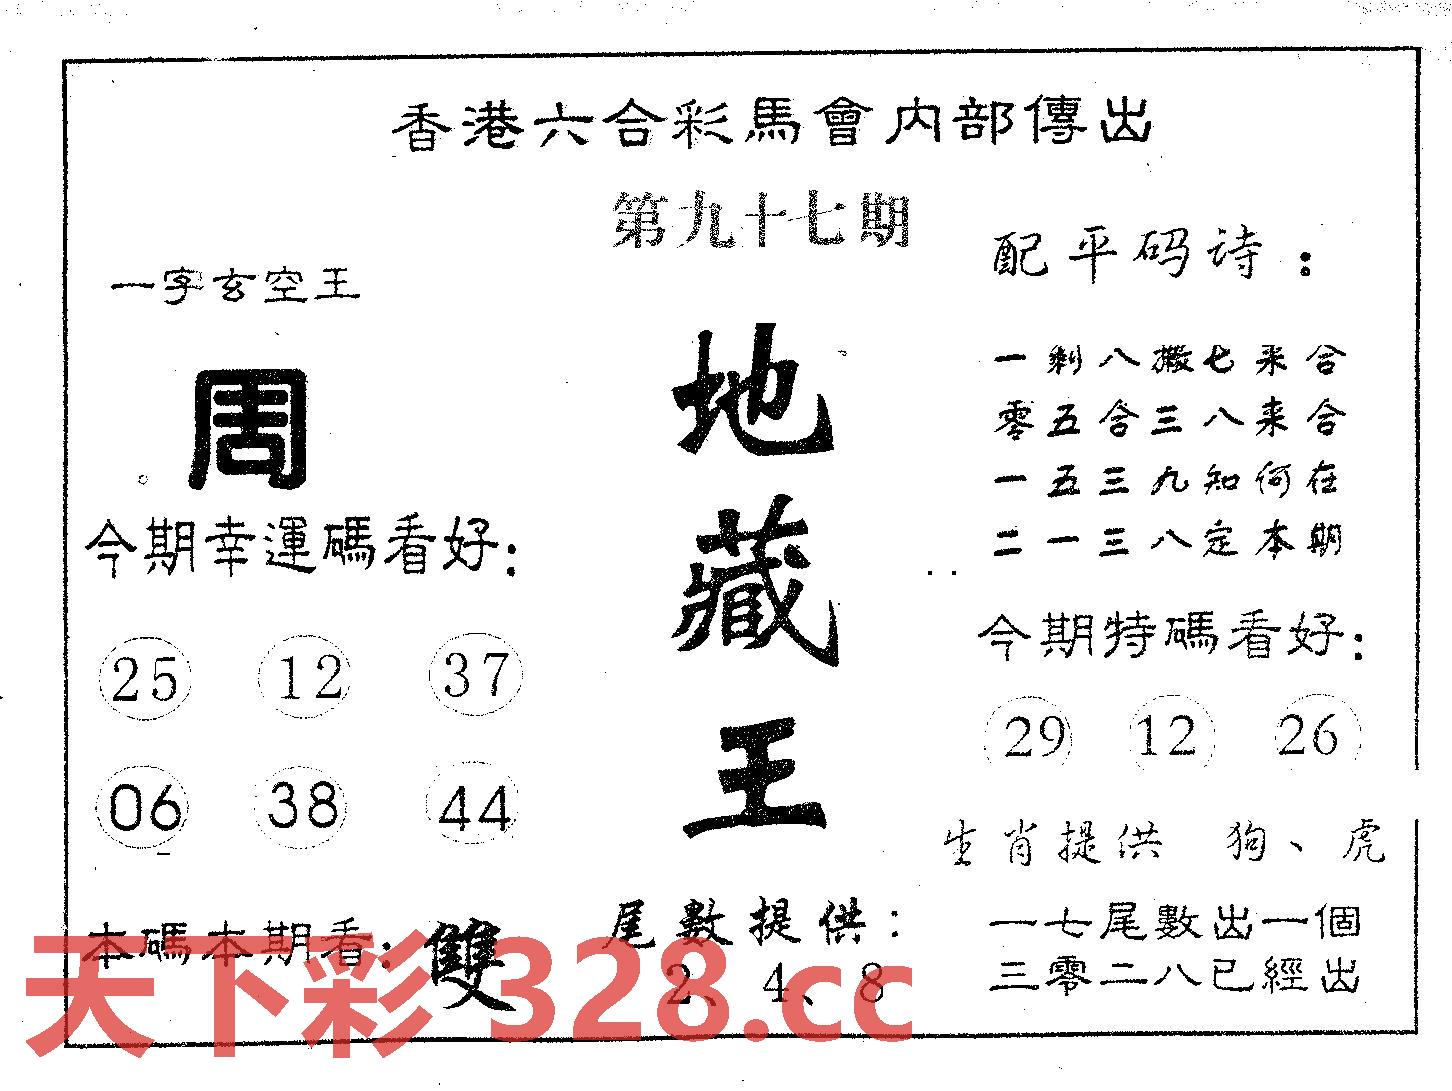 香港六合彩馬會内部傳出
第九十七期
一字玄空王
周
今期幸運碼看好：
25 12 37
06 38 44
本碼本期看：雙
地藏王
尾數提供：
2、4、8
配平码诗：
一剩八搬七来合
零五合三八来合
一五三九知何在
二一三八定本期
今期特碼看好：
29 12 26
生肖提供 狗、虎
一七尾數出一個
三零二八已經出
天下彩 328.cc